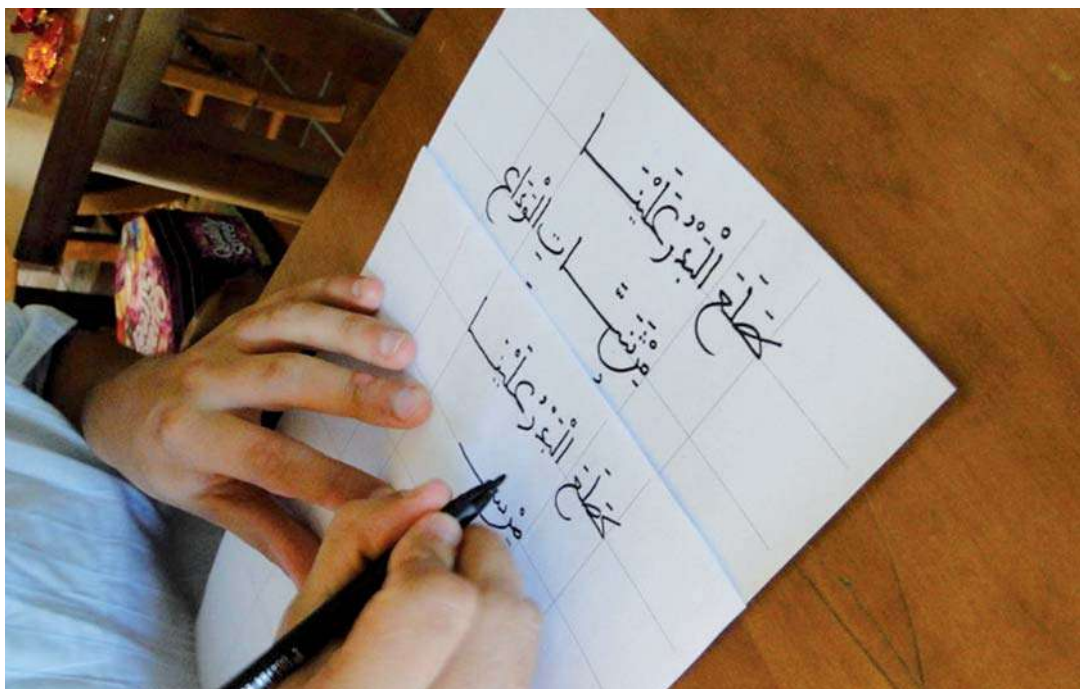 طَلَعَ الْبَدْرُ عَلَيْنَا
مِنْ ثَنِيَّاتِ الْوَدَاعِ
طَلَعَ الْبَدْرُ عَلَيْنَا
مِنْ